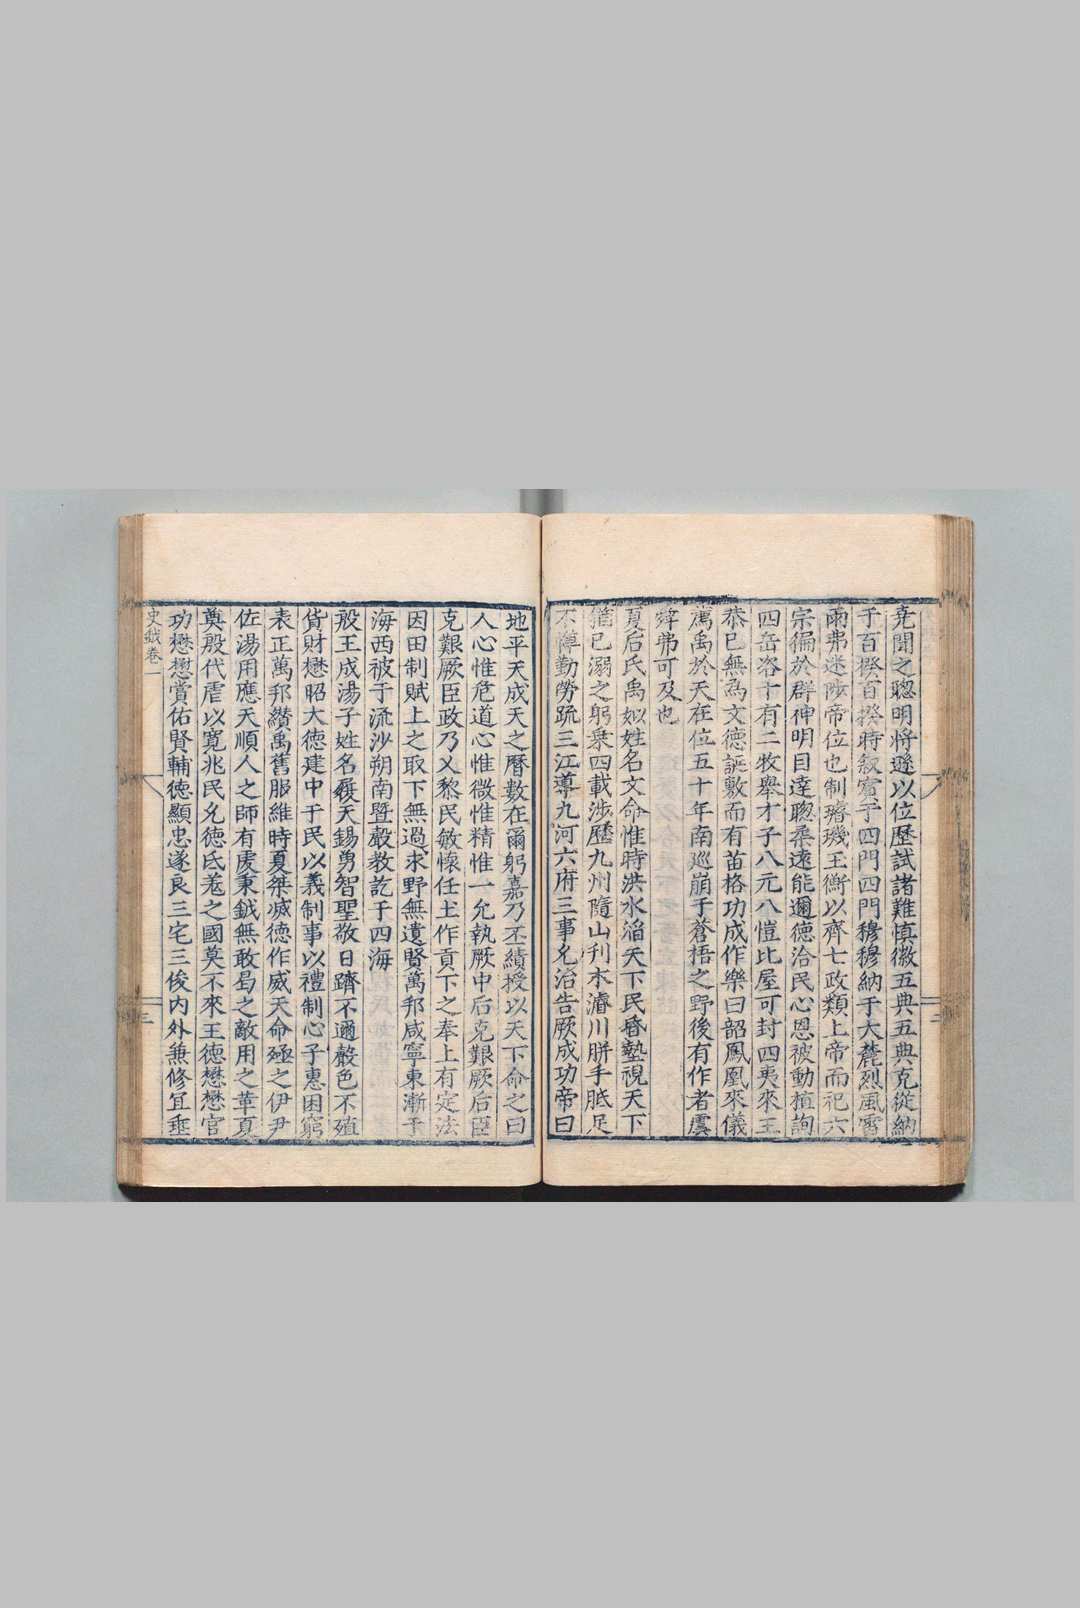 堯聞之聰明將遜以位歷試諸難慎徽五典五典克從納
于百揆百揆時叙賓于四門四門穆穆納于大麓烈風雷
雨弗迷陟帝位也制璿璣玉衡以齊七政類上帝而祀六
宗徧於群神明目達聰柔遠能邇德洽民心恩被動植詢
四岳咨十有二牧舉才子八元八愷比屋可封四夷來王
恭已無為文德誕敷而有苗格功成作樂曰韶鳳凰來儀
薦禹於天在位五十年南巡崩于蒼梧之野後有作者虞
舜弗可及也
夏后氏禹姒姓名文命惟時洪水滔天下民昏墊視天下
猶已溺之躬乗四載涉歷九州隨山刋木濬川胼手胝足
不憚勤勞疏三江導九河六府三事允治告厥成功帝曰
地平天成天之曆數在爾躬嘉乃丕績授以天下命之曰
人心惟危道心惟微惟精惟一允執厥中后克艱厥后臣
克艱厥臣政乃乂黎民敏懷任土作貢下之奉上有定法
因田制賦上之取下無過求野無遺賢萬邦咸寧東漸于
海西被于流沙朔南暨聲教訖于四海
殷王成湯子姓名履天錫勇智聖敬日躋不邇聲色不殖
貨財懋昭大德建中于民以義制事以禮制心子惠困窮
表正萬邦纘禹舊服維時夏桀滅德作威天命殛之伊尹
佐湯用應天順人之師有虔秉鉞無敢曷之敵用之革夏
奠殷代虐以寬兆民允德氐羌之國莫不來王德懋懋官
功懋懋賞佑賢輔德顯忠遂良三宅三俊内外兼修宜垂
史鉞卷一
三